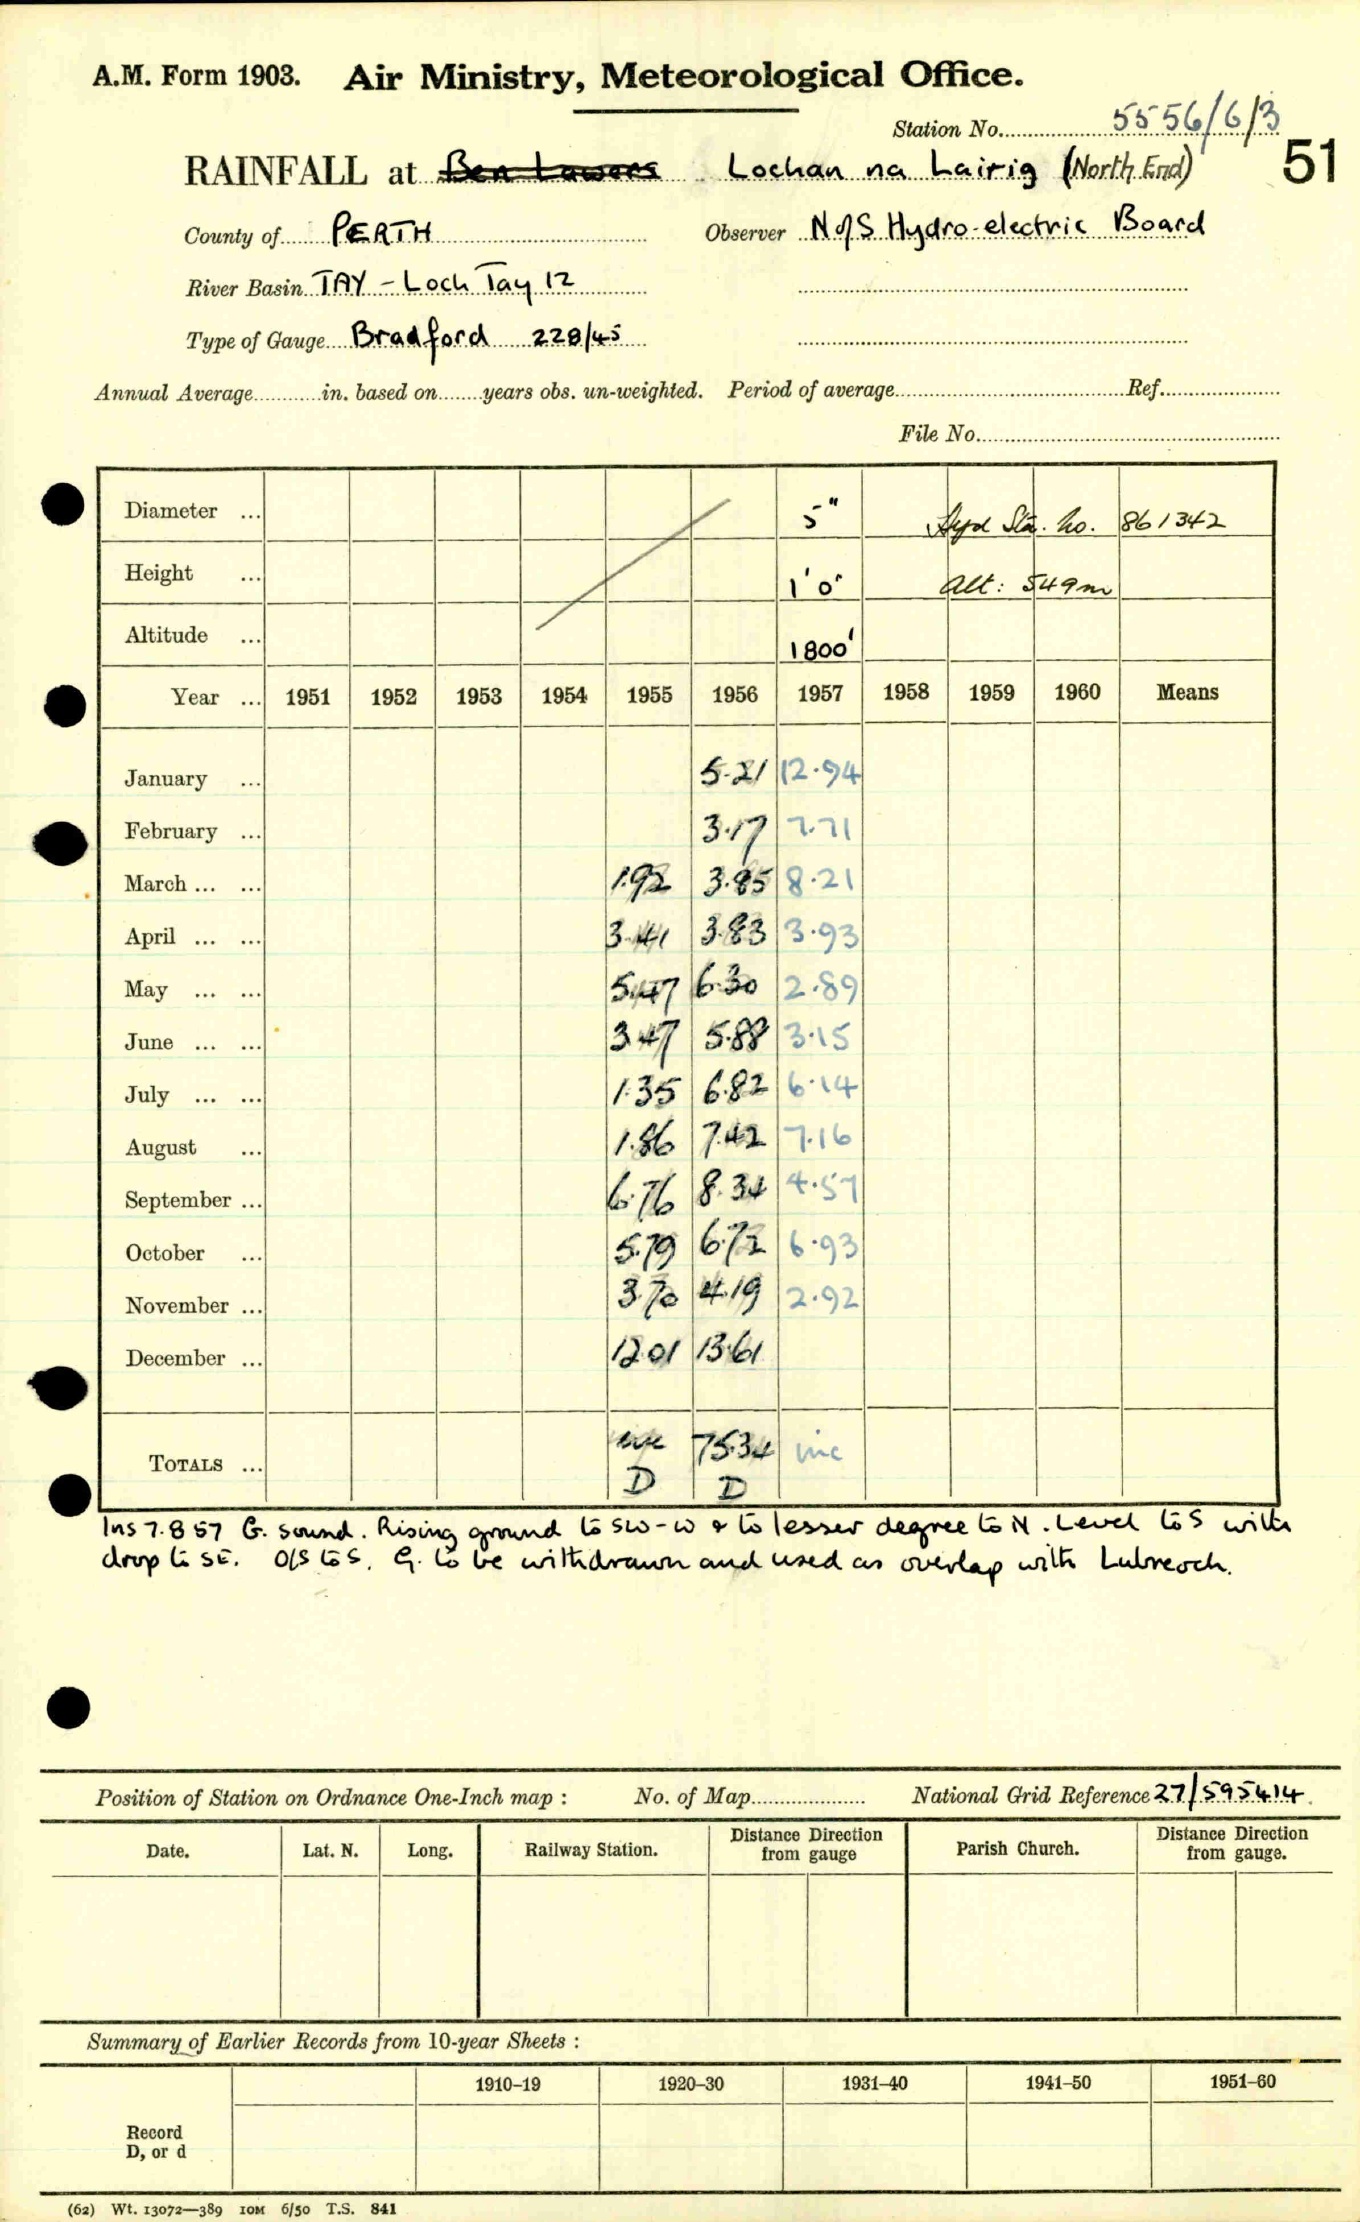 A.M. Form 1903. Air Ministry, Meteorological Office.
Station No. 5556/6/3
51
RAINFALL at Ben Lawers Lochan na Lairig (North End)
County of PERTH Observer N of S Hydro-electric Board
River Basin TAY - Loch Tay 12
Type of Gauge Bradford 228/45
Annual Average in. based on years obs. un-weighted. Period of average Ref.
File No.
Diameter ... 5" Hyd Sta. No. 861342
Height ... 1'0" Alt: 549m
Altitude ... 1800'
Year ... 1951 1952 1953 1954 1955 1956 1957 1958 1959 1960 Means
January ... 5.21 12.94
February ... 3.17 7.71
March ... ... 1.92 3.85 8.21
April ... ... 3.41 3.83 3.93
May ... ... 5.47 6.30 2.89
June ... ... 3.47 5.88 3.15
July ... ... 1.35 6.82 6.14
August ... 1.86 7.42 7.16
September ... 6.76 8.34 4.57
October ... 5.79 6.72 6.93
November ... 3.70 4.19 2.92
December ... 12.01 13.61
TOTALS ... inc 75.34 inc
D D
Ins 7.8 57 G. sound. Rising ground to SW-W & to lesser degree to N. Level to S with
drop to SE. O/S to S. G. to be withdrawn and used as overlap with Lubreoch.
Position of Station on Ordnance One-Inch map : No. of Map National Grid Reference 27/595414
Date. Lat. N. Long. Railway Station. Distance Direction from gauge Parish Church. Distance Direction from gauge.
Summary of Earlier Records from 10-year Sheets :
1910–19 1920–30 1931–40 1941–50 1951–60
Record
D, or d
(62) Wt. 13072—389 10M 6/50 T.S. 841